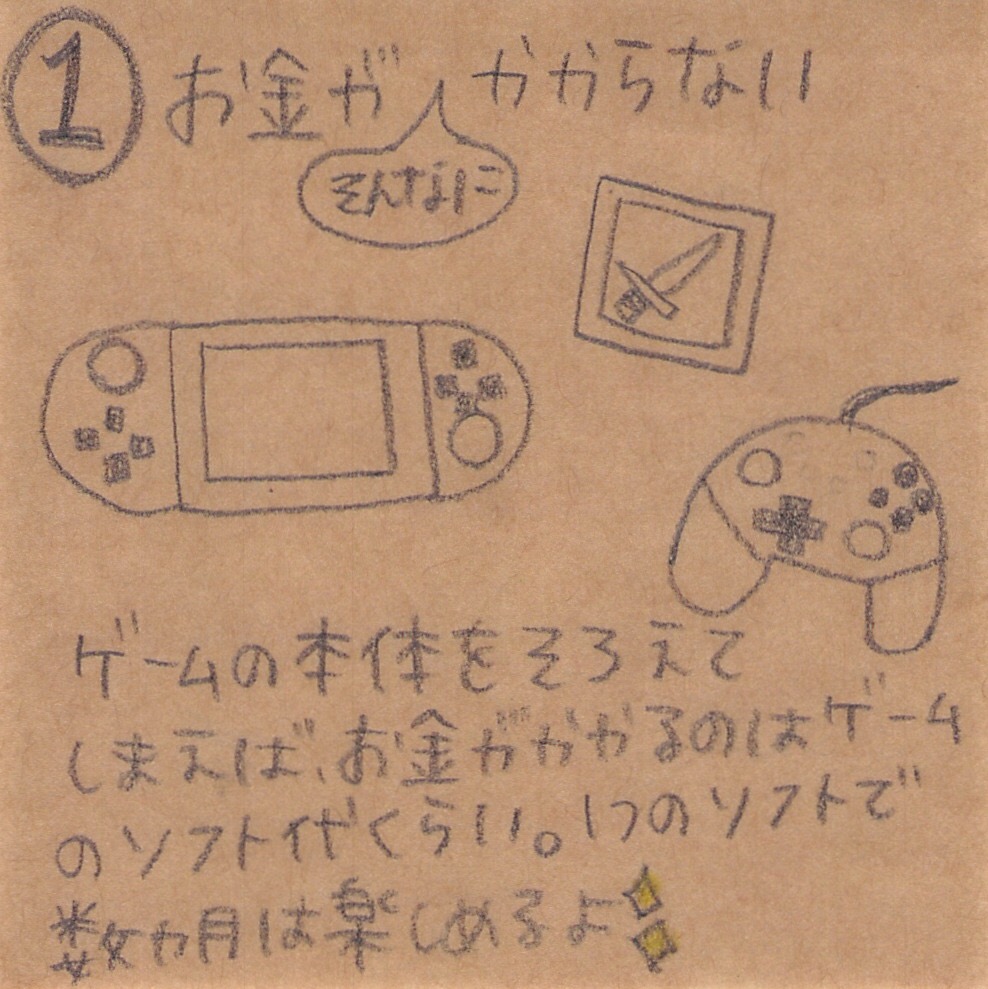 1 お金がかからない
そんなに
ゲームの本体をそろえて
しまえば、お金がかかるのはゲーム
のソフト代くらい。1つのソフトで
数ヵ月は楽しめるよ